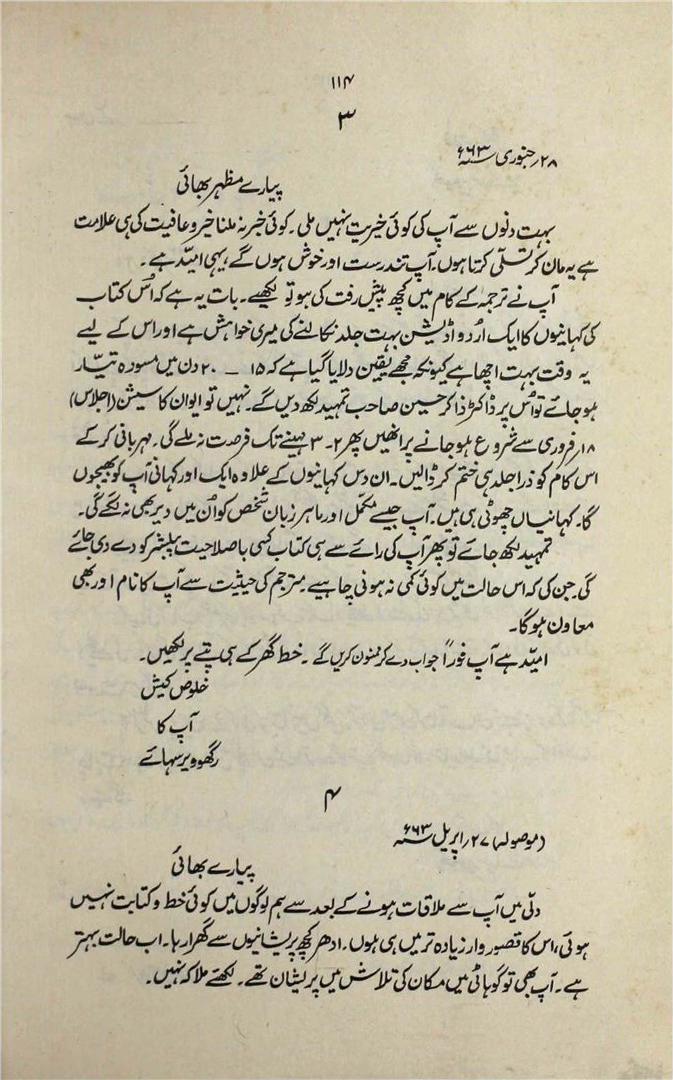 ۱۱۴
۳
۲۸؍ جنوری ۶۶۳
پیارے مظہر بھائی
بہت دنوں سے آپ کی کوئی خیریت نہیں ملی۔ کوئی خبر نہ ملنا خیر و عافیت کی ہی علامت
ہے یہ مان کر تسلّی کرتا ہوں۔ آپ تندرست اور خوش ہوں گے، یہی امیّد ہے۔
آپ نے ترجمہ کے کام میں کچھ پیش رفت کی ہو تو لکھیے۔ بات یہ ہے کہ اُس کتاب
کی کہانیوں کا ایک اُردو اڈیشن بہت جلد نکالنے کی میری خواہش ہے اور اس کے لیے
یہ وقت بہت اچھا ہے کیونکہ مجھے یقین دلایا گیا ہے کہ ۱۵ ـ ۲۰ دن میں مسودہ تیّار
ہو جائے تو اُس پر ڈاکٹر ذاکر حسین صاحب تمہید لکھ دیں گے۔ نہیں تو ایوان کا سیشن (اجلاس)
۱۸؍ فروری سے شروع ہو جانے پر انھیں پھر ۲۔۳ مہینے تک فرصت نہ ملے گی۔ مہربانی کر کے
اس کام کو ذرا جلد ہی ختم کر ڈالیں۔ ان دس کہانیوں کے علاوہ ایک اور کہانی آپ کو بھیجوں
گا۔ کہانیاں چھوٹی ہی ہیں۔ آپ جیسے مکمّل اور ماہر زبان شخص کو اُن میں دیر بھی نہ لگے گی۔
تمہید لکھ جائے تو پھر آپ کی رائے سے ہی کتاب کسی باصلاحیت پبلیشر کو دے دی جائے
گی۔ جن کی کہ اس حالت میں کوئی کمی نہ ہونی چاہیے۔ مترجم کی حیثیت سے آپ کا نام اور بھی
معاون ہوگا۔
امیّد ہے آپ فوراً جواب دے کر ممنون کریں گے۔ خط گھر کے ہی پتے پر لکھیں۔
خلوص کیش
آپ کا
رگھوویر سہائے
۴
(موصولہ) ۲۷؍ اپریل ۶۶۳
پیارے بھائی
دلّی میں آپ سے ملاقات ہونے کے بعد سے ہم لوگوں میں کوئی خط و کتابت نہیں
ہوئی، اس کا قصوروار زیادہ تر میں ہی ہوں۔ ادھر کچھ پریشانیوں سے گھرا رہا۔ اب حالت بہتر
ہے۔ آپ بھی تو گوہاٹی میں مکان کی تلاش میں پریشان تھے۔ لکھئے ملا کہ نہیں۔